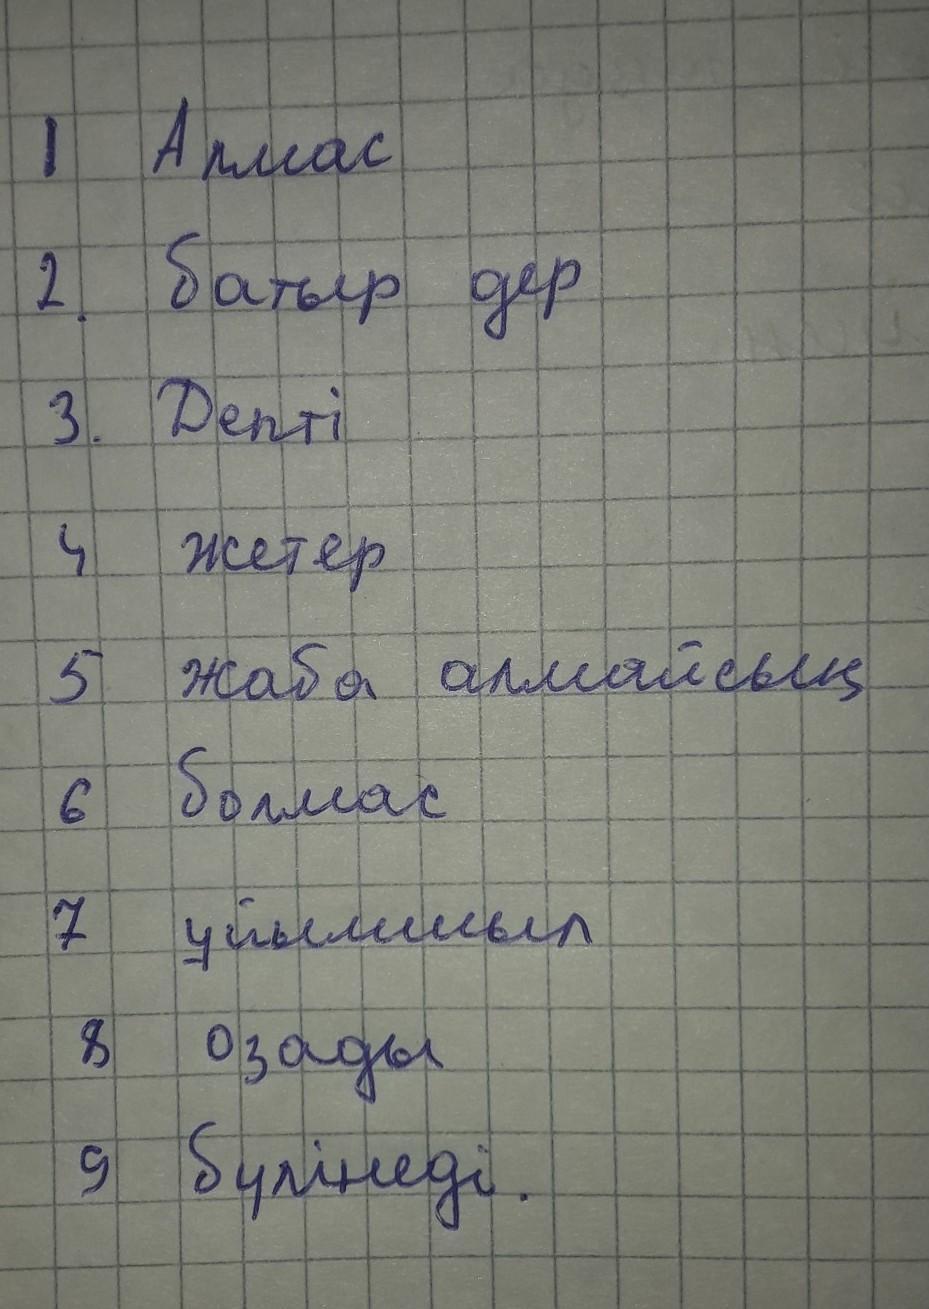 1 Алмас
2. батыр дер
3. Депті
4 жетер
5 жаба алмайсың
6 болмас
7 ұйымшыл
8 озады
9 бүлінеді.